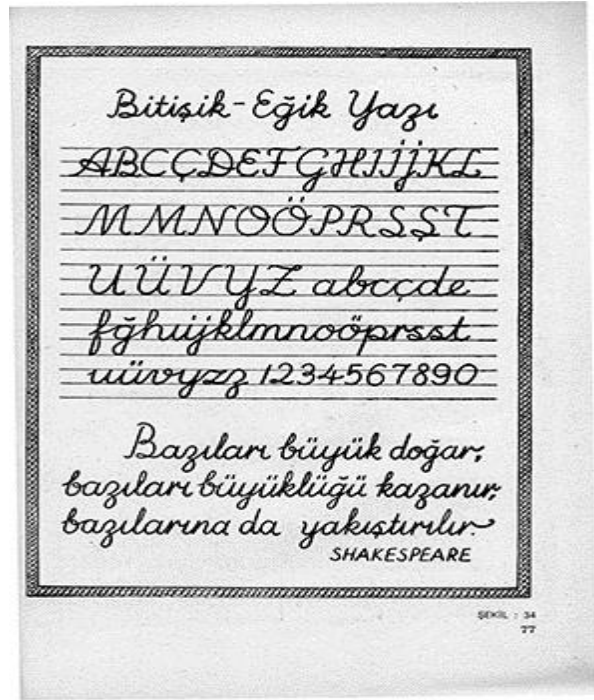 Bitişik-Eğik Yazı
ABCÇDEFGHIİJKL
MMNOÖPRSŞT
UÜVYZ abcçde
fğhıijklmnoöprsst
uüvyzz 1234567890
Bazıları büyük doğar;
bazıları büyüklüğü kazanır;
bazılarına da yakıştırılır.
SHAKESPEARE
ŞEKİL : 34
77